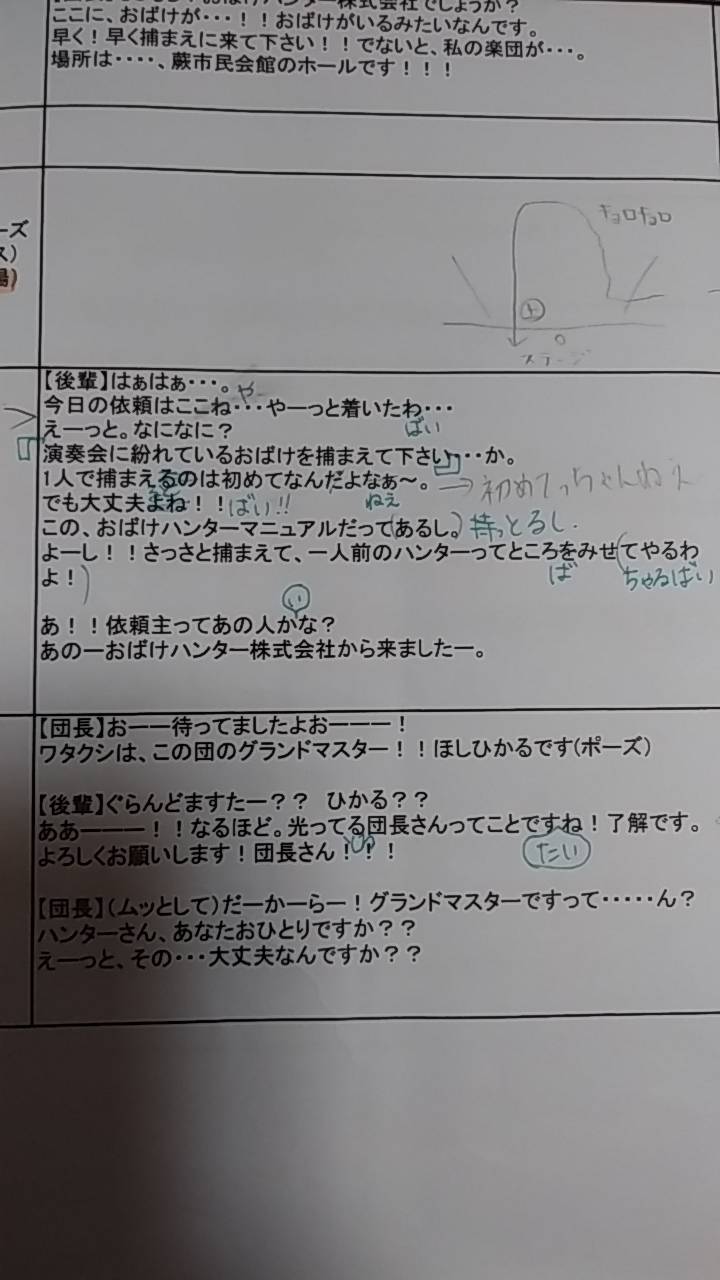 ここに、おばけが・・・！！おばけがいるみたいなんです。
早く！早く捕まえに来て下さい！！でないと、私の楽団が・・・。
場所は・・・・、蕨市民会館のホールです！！！
ーズ
ス)
場)
ﾁｮﾛﾁｮﾛ
上
ステージ
【後輩】はぁはぁ・・・。
や
今日の依頼はここね・・・やーっと着いたわ・・・
ばい
えーっと。なになに？
『演奏会に紛れているおばけを捕まえて下さい』・・・か。
1人で捕まえるのは初めてなんだよなぁ～。
→初めてっちゃんねえ
でも大丈夫よね！！ばい!!
ねえ
この、おばけハンターマニュアルだって(あるし。)持っとるし.
よーし！！さっさと捕まえて、一人前のハンターってところをみせ(てやるわ
よ！)
ば
ちゃるばい
い
あ！！依頼主ってあの人かな？
あのーおばけハンター株式会社から来ましたー。
【団長】おーー待ってましたよおーーー！
ワタクシは、この団のグランドマスター！！ほしひかるです(ポーズ)
【後輩】ぐらんどますたー？？　ひかる？？
ああーーー！！なるほど。光ってる団長さんってことですね！了解です。
よろしくお願いします！団長さん！！！
たい
【団長】(ムッとして)だーかーらー！グランドマスターですって・・・・・ん？
ハンターさん、あなたおひとりですか？？
えーっと、その・・・大丈夫なんですか？？